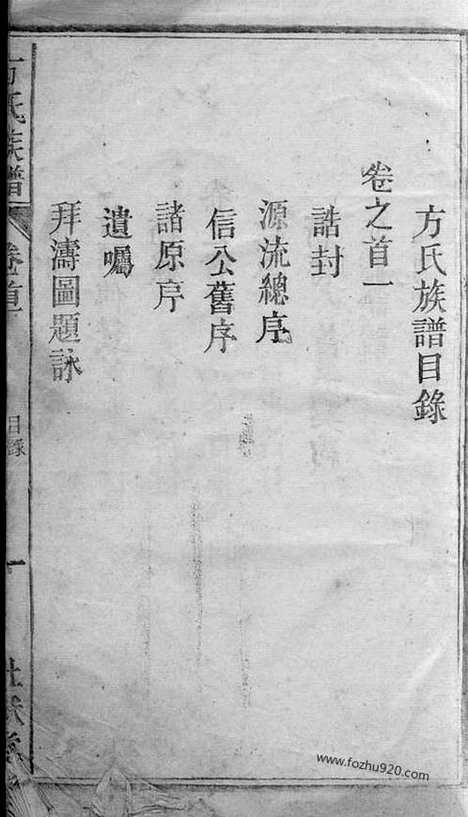 方氏族譜目錄
卷之首一
誥封
源流總序
信公舊序
諸原序
遺囑
拜濤圖題詠
方氏族譜
卷首
目錄
一
www.fozhu920.com